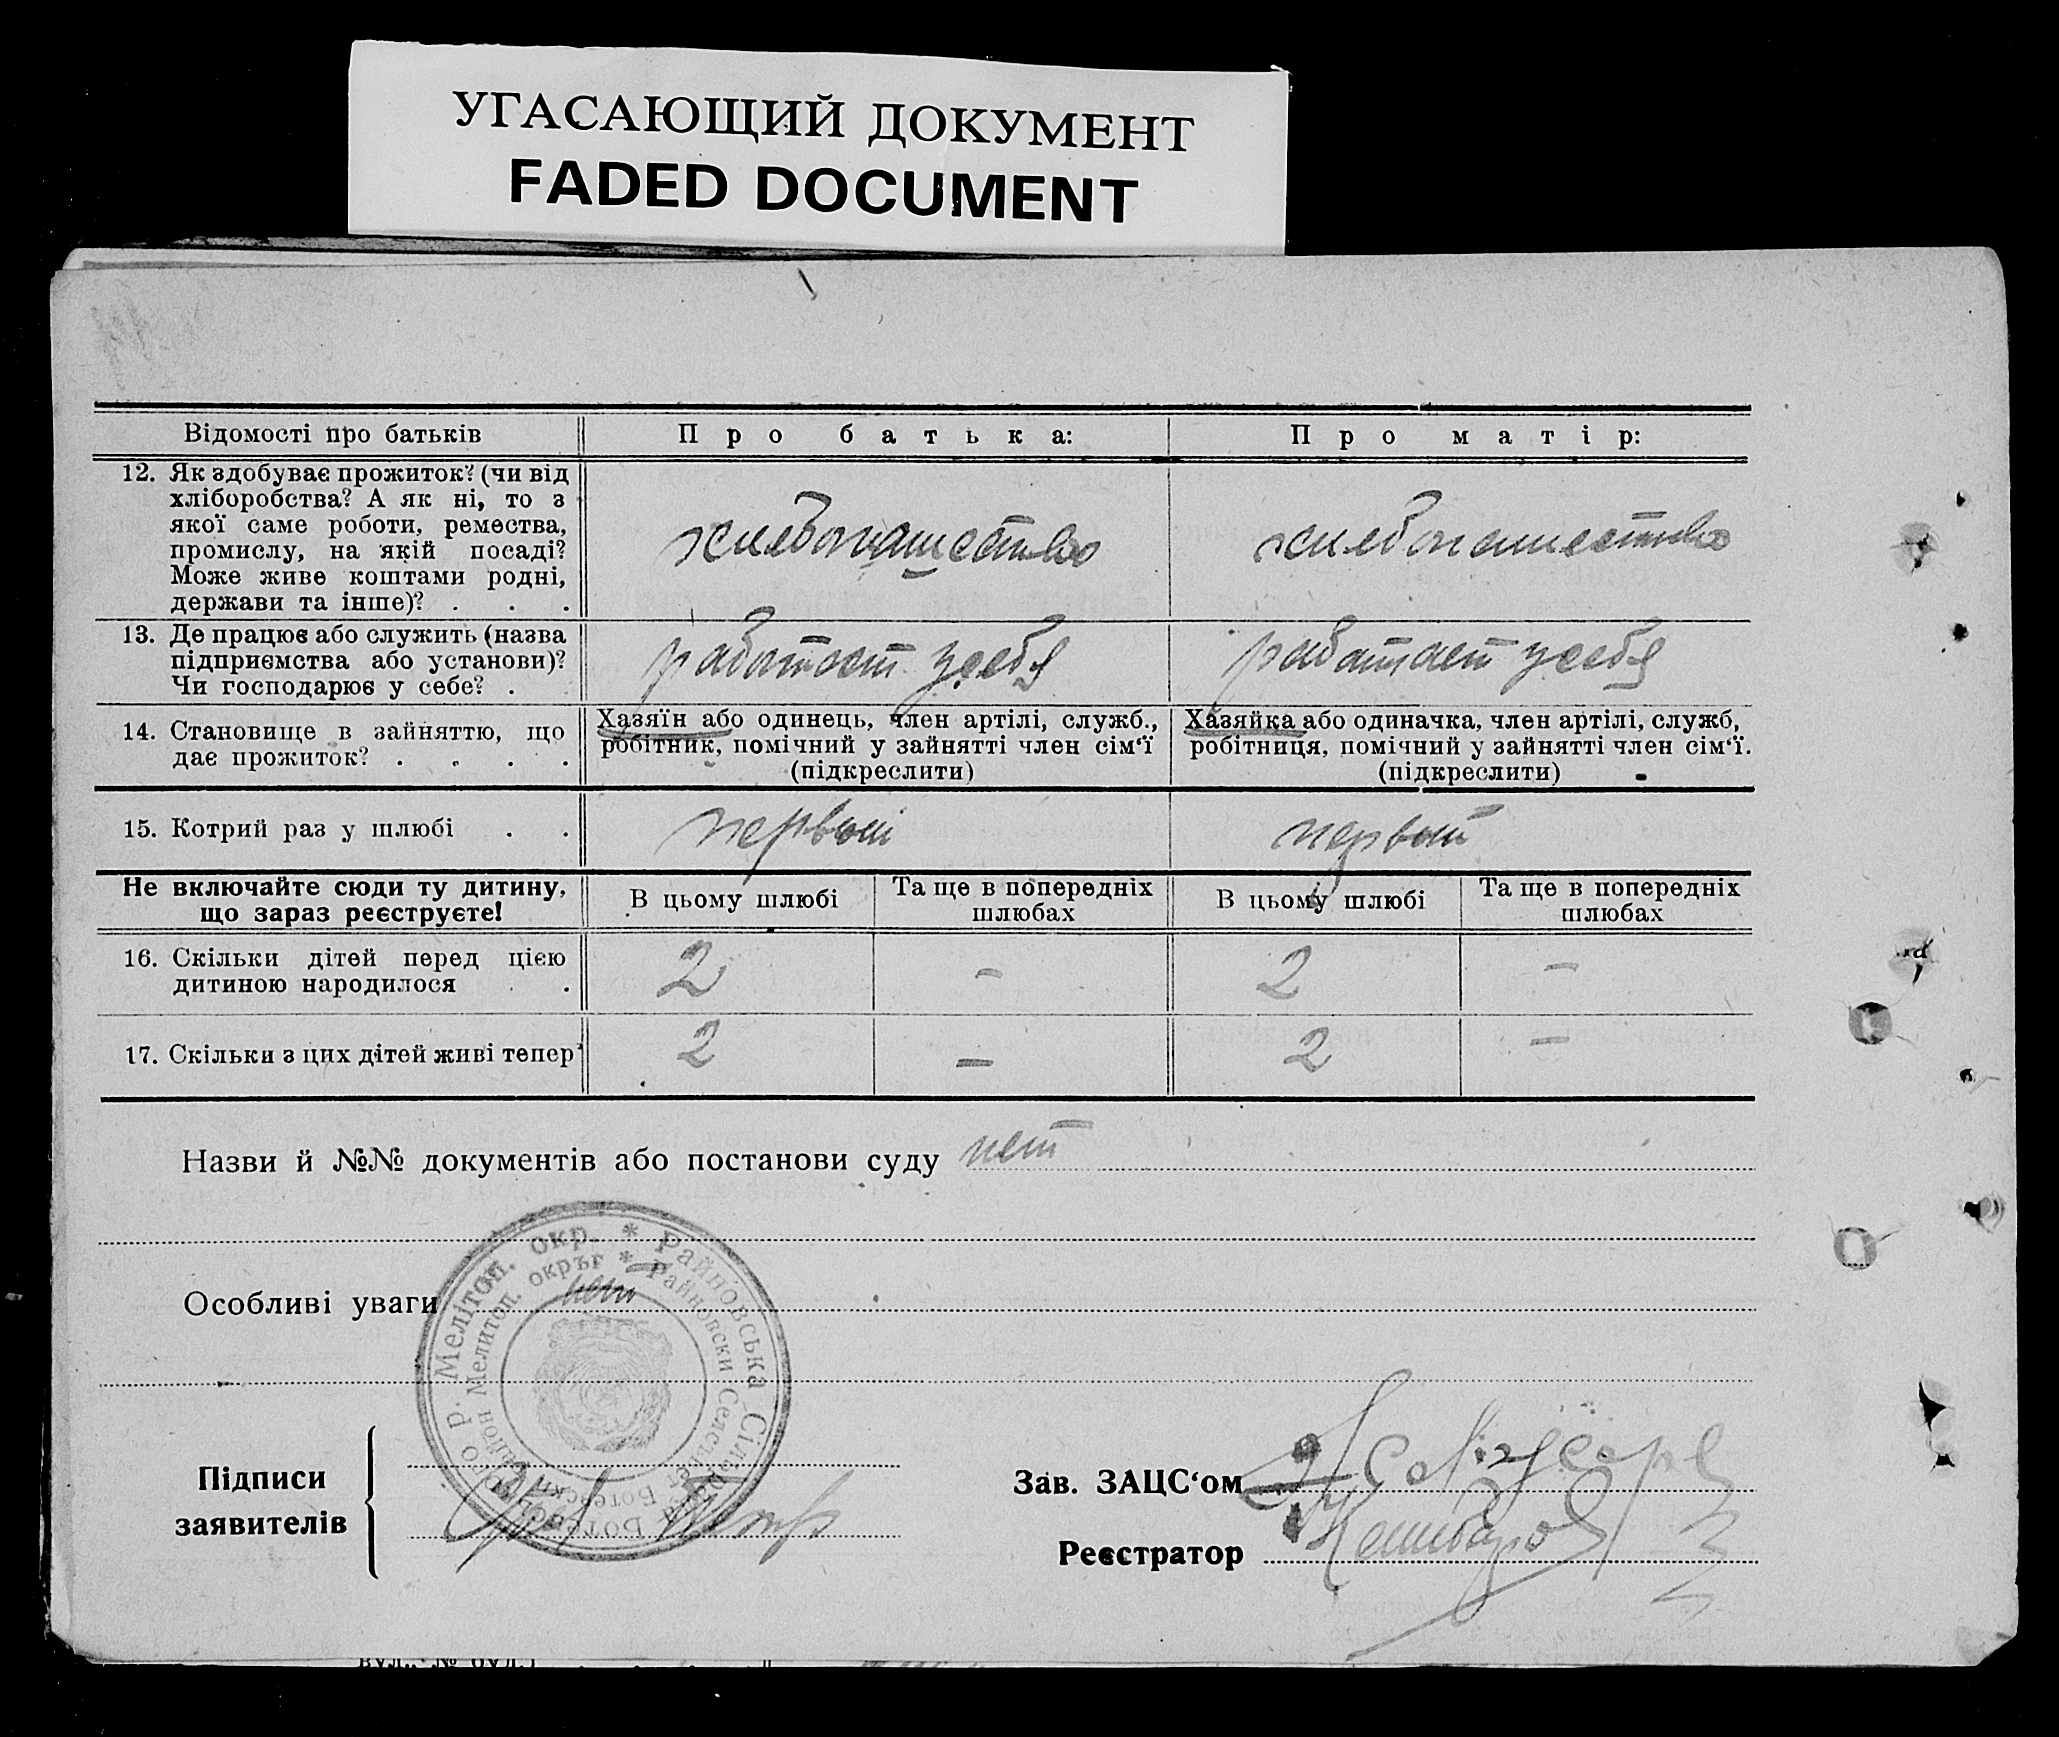 УГАСАЮЩИЙ ДОКУМЕНТ
FADED DOCUMENT
Відомості про батьків
Про батька:
Про матір:
12. Як здобуває прожиток? (чи від
хліборобства? А як ні, то з
якої саме роботи, ремества,
промислу, на якій посаді?
Може живе коштами родні,
держави та інше)? . . .
хлебопашество
хлебопашество
13. Де працює або служить (назва
підприємства або установи)?
Чи господарює у себе? .
работает у себя
работает у себя
14. Становище в зайняттю, що
дає прожиток? . . . .
Хазяїн або одинець, член артілі, служб.,
робітник, помічний у зайнятті член сім‘ї
(підкреслити)
Хазяйка або одиначка, член артілі, служб,
робітниця, помічний у зайнятті член сім‘ї.
(підкреслити)
15. Котрий раз у шлюбі . .
первый
первый
Не включайте сюди ту дитину,
що зараз реєструєте!
В цьому шлюбі
Та ще в попередніх
шлюбах
В цьому шлюбі
Та ще в попередніх
шлюбах
16. Скільки дітей перед цією
дитиною народилося . .
2
–
2
–
17. Скільки з цих дітей живі тепер
2
–
2
–
Назви й №№ документів або постанови суду нет
Особливі уваги нет
Мелітоп. окр. * Райновська Сільрада
Мелитоп. окръг * Райновски Селсъвет Ботевски район
Підписи
заявителів
Зав. ЗАЦС‘ом
Реєстратор
вул., № буд.)